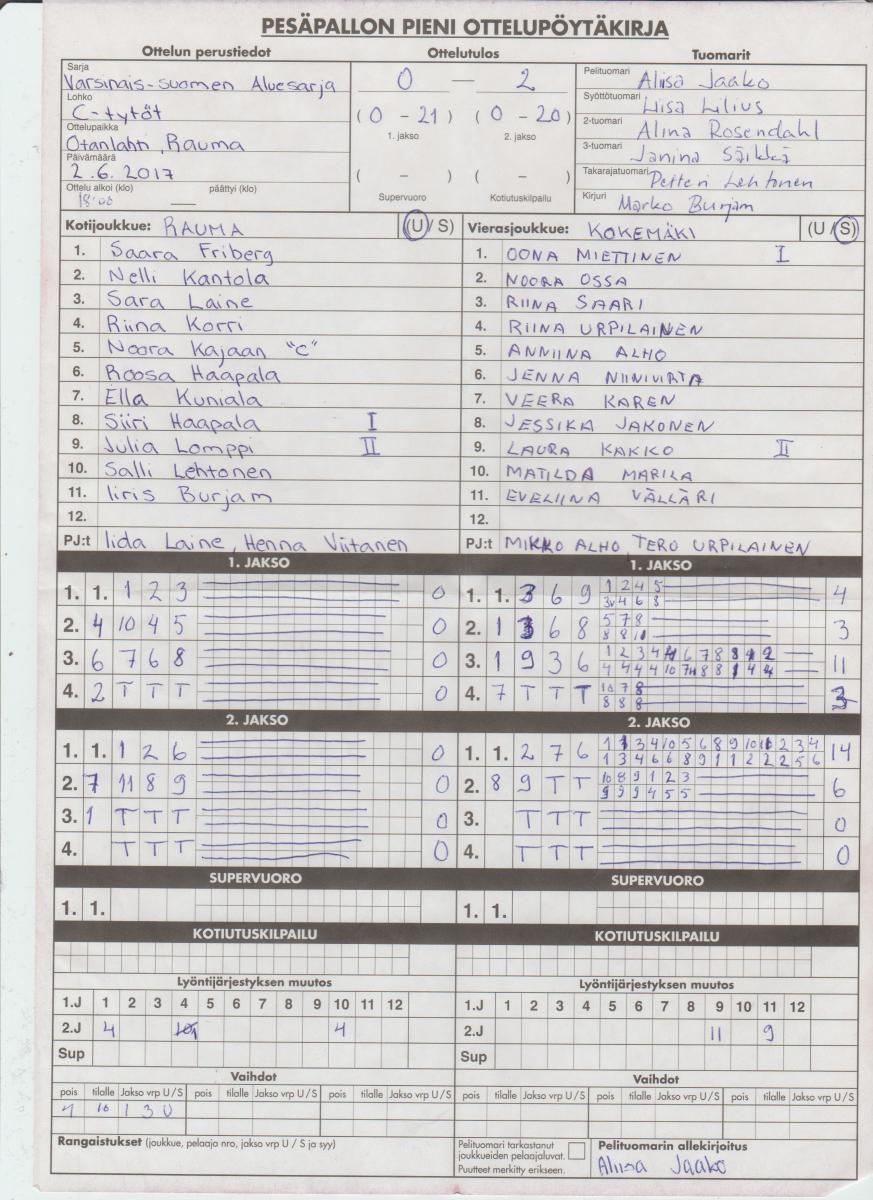 PESÄPALLON PIENI OTTELUPÖYTÄKIRJA
Ottelun perustiedot Ottelutulos Tuomarit
Sarja
Varsinais-Suomen Aluesarja
Lohko
C-tytöt
Ottelupaikka
Otanlahti, Rauma
Päivämäärä
2.6.2017
Ottelu alkoi (klo) päättyi (klo)
18:00
0 — 2
(0 - 21) (0 - 20)
1. jakso 2. jakso
( - ) ( - )
Supervuoro Kotiutuskilpailu
Pelituomari Aliisa Jaako
Syöttötuomari Liisa Lilius
2-tuomari Alina Rosendahl
3-tuomari Janina Säikkä
Takarajatuomari Petteri Lehtonen
Kirjuri Marko Burjam
Kotijoukkue: RAUMA (U/S)
1. Saara Friberg
2. Nelli Kantola
3. Sara Laine
4. Riina Korri
5. Noora Kajaan "C"
6. Roosa Haapala
7. Ella Kuniala
8. Siiri Haapala I
9. Julia Lomppi II
10. Salli Lehtonen
11. Iiris Burjam
12.
PJ:t Iida Laine, Henna Viitanen
Vierasjoukkue: KOKEMÄKI (U/S)
1. OONA MIETTINEN I
2. NOORA OSSA
3. RIINA SAARI
4. RIINA URPILAINEN
5. ANNIINA ALHO
6. JENNA NIINIVIRTA
7. VEERA KAREN
8. JESSIKA JAKONEN
9. LAURA KAKKO II
10. MATILDA MARILA
11. EVELIINA VÄLLÄRI
12.
PJ:t MIKKO ALHO TERO URPILAINEN
1. JAKSO
1. 1. 1 2 3 0
2. 4 10 4 5 0
3. 6 7 6 8 0
4. 2 T T T 0
1. JAKSO
1. 1. 3 6 9 1 2 4 5 4
3v 4 6 8
2. 1 3 6 8 5 7 8 3
8 8 11
3. 1 9 3 6 11
4. 7 T T T 10 7 8 3
8 8 8
2. JAKSO
1. 1. 1 2 6 0
2. 7 11 8 9 0
3. 1 T T T 0
4. T T T 0
2. JAKSO
1. 1. 2 7 6 14
1 3 4 6 6 8 9 1 1 2 2 2 5 6
2. 8 9 T T 10 8 9 1 2 3 6
9 9 9 4 5 5
3. T T T 0
4. T T T 0
SUPERVUORO SUPERVUORO
1. 1. 1. 1.
KOTIUTUSKILPAILU KOTIUTUSKILPAILU
Lyöntijärjestyksen muutos Lyöntijärjestyksen muutos
1.J 1 2 3 4 5 6 7 8 9 10 11 12 1.J 1 2 3 4 5 6 7 8 9 10 11 12
2.J 4 4 2.J 11 9
Sup Sup
Vaihdot Vaihdot
pois tilalle Jakso vrp U/S pois tilalle Jakso vrp U/S pois tilalle Jakso vrp U/S pois tilalle Jakso vrp U/S pois tilalle Jakso vrp U/S pois tilalle Jakso vrp U/S
10 1 3 U
Rangaistukset (joukkue, pelaaja nro, jakso vrp U / S ja syy)
Pelituomari tarkastanut
joukkueiden pelaajaluvat.
Puutteet merkitty erikseen.
Pelituomarin allekirjoitus
Aliisa Jaako